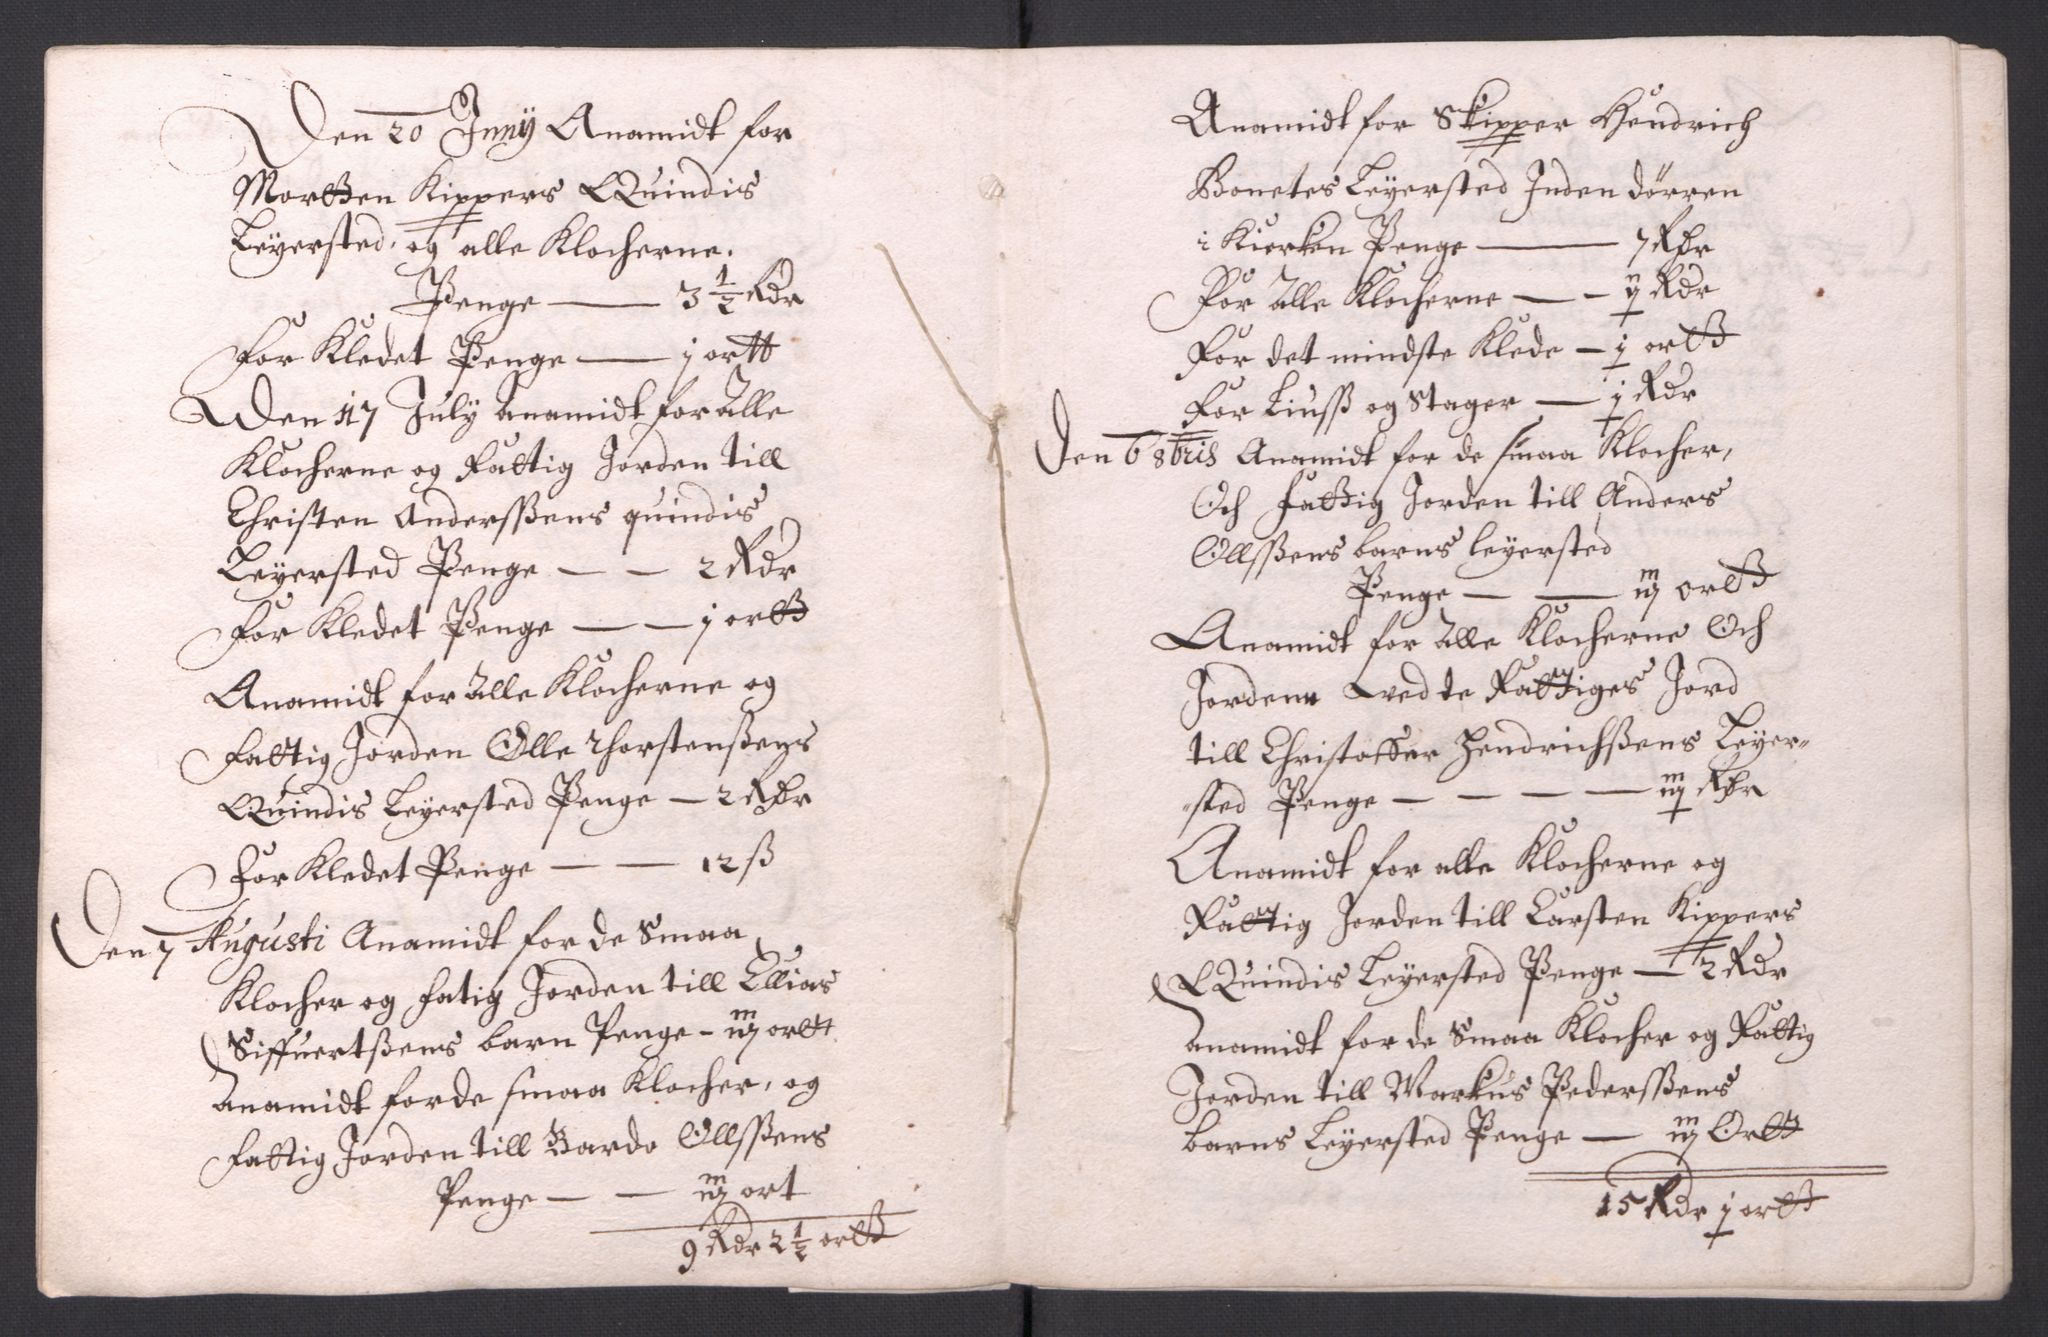 Den 20 Juny Anamidt for
Mortten Kippers Quindis
Leyersted, og alle Klocherne.
Penge — 3 ½ Rdr
For Kledet Penge — j ortt
Den 17 July anamidt for alle
Klocherne og Fattig Jorden till
Christen Anderssens quindis
Leyersted Penge — — 2 Rdr
For Kledet Penge — — j ortt
Anamidt for alle Klocherne og
Fattig Jorden Olle Thorstenßens
Quindis Leyersted Penge — 2 Rdr
For Kledet Penge — — 12 ß
Den 7 Augusti Anamidt for de Smaa
Klocher og fatig Jorden till Ellias
Siffuertßens barn Penge – iij ortt
Anamidt for de smaa Klocher, og
Fattig Jorden till Bardo Ollssens
Penge — — iij ort
9 Rdr 2 ½ ortt
Anamidt for Skipper Hendrich
Bonetes Leyersted Inden dörren
i Kierken Penge — 7 Rdr
For alle Klocherne — – ij Rdr
For det mindste Klede – j ortt
For Liuss og Stager — j Rdr
Den 6 8bris Anamidt for de smaa Klocher,
Och Fattig Jorden till Anders
Ollssens barns leyersted
Penge — — iij ortt
Anamidt for alle Klocherne Och
Jordenn wed de Fattiges Jord
till Christoffer Hendrichßens Leyer=
=sted Penge — — — — iij Rdr
Anamidt for alle Klocherne og
Fattig Jorden till Carsten Kippers
Quindis Leyersted Penge — 2 Rdr
Anamidt for de Smaa Klocher og Fattig
Jorden till Markus Pederssens
barns Leyersted Penge — iij Ortt
15 Rdr j ortt